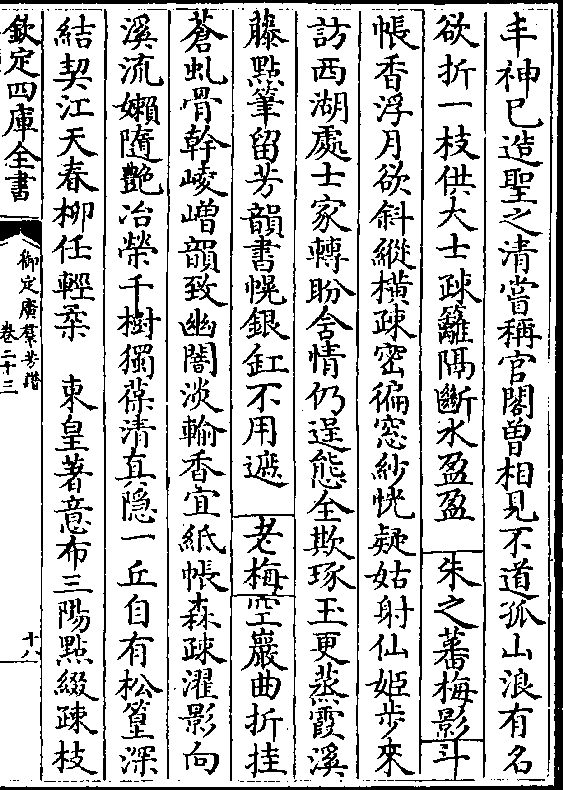 丰神已造聖之清嘗稱官閣曽相見不道孤山浪有名
欲折一枝供大士疎籬隔斷水盈盈　朱之蕃梅影斗
帳香浮月欲斜縱橫疎密徧窓紗恍疑姑射仙姬歩來
訪西湖處士家轉盼含情仍逞態全欺琢玉更蒸霞溪
藤點筆留芳韻書幌銀缸不用遮　老梅空巖曲折挂
蒼虬骨幹崚嶒韻致幽闇淡輸香宜紙帳森疎濯影向
溪流嬾隨艷冶榮千樹獨葆清真隠一丘自有松篁深
結契江天春柳任輕柔　東皇著意布三陽點綴疎枝
欽定四庫全書
御定廣羣芳譜
卷二十三
十八